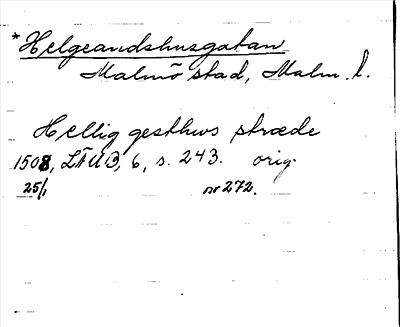 *Helgeandshusgatan
Malmö stad, Malm. l.
Hellig gesthws stræde
1508, LÄUB, 6, s. 243. orig.
25/1 nr 272.